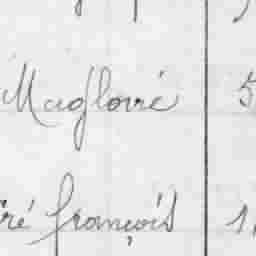 Magloiré 5
ré françois 1